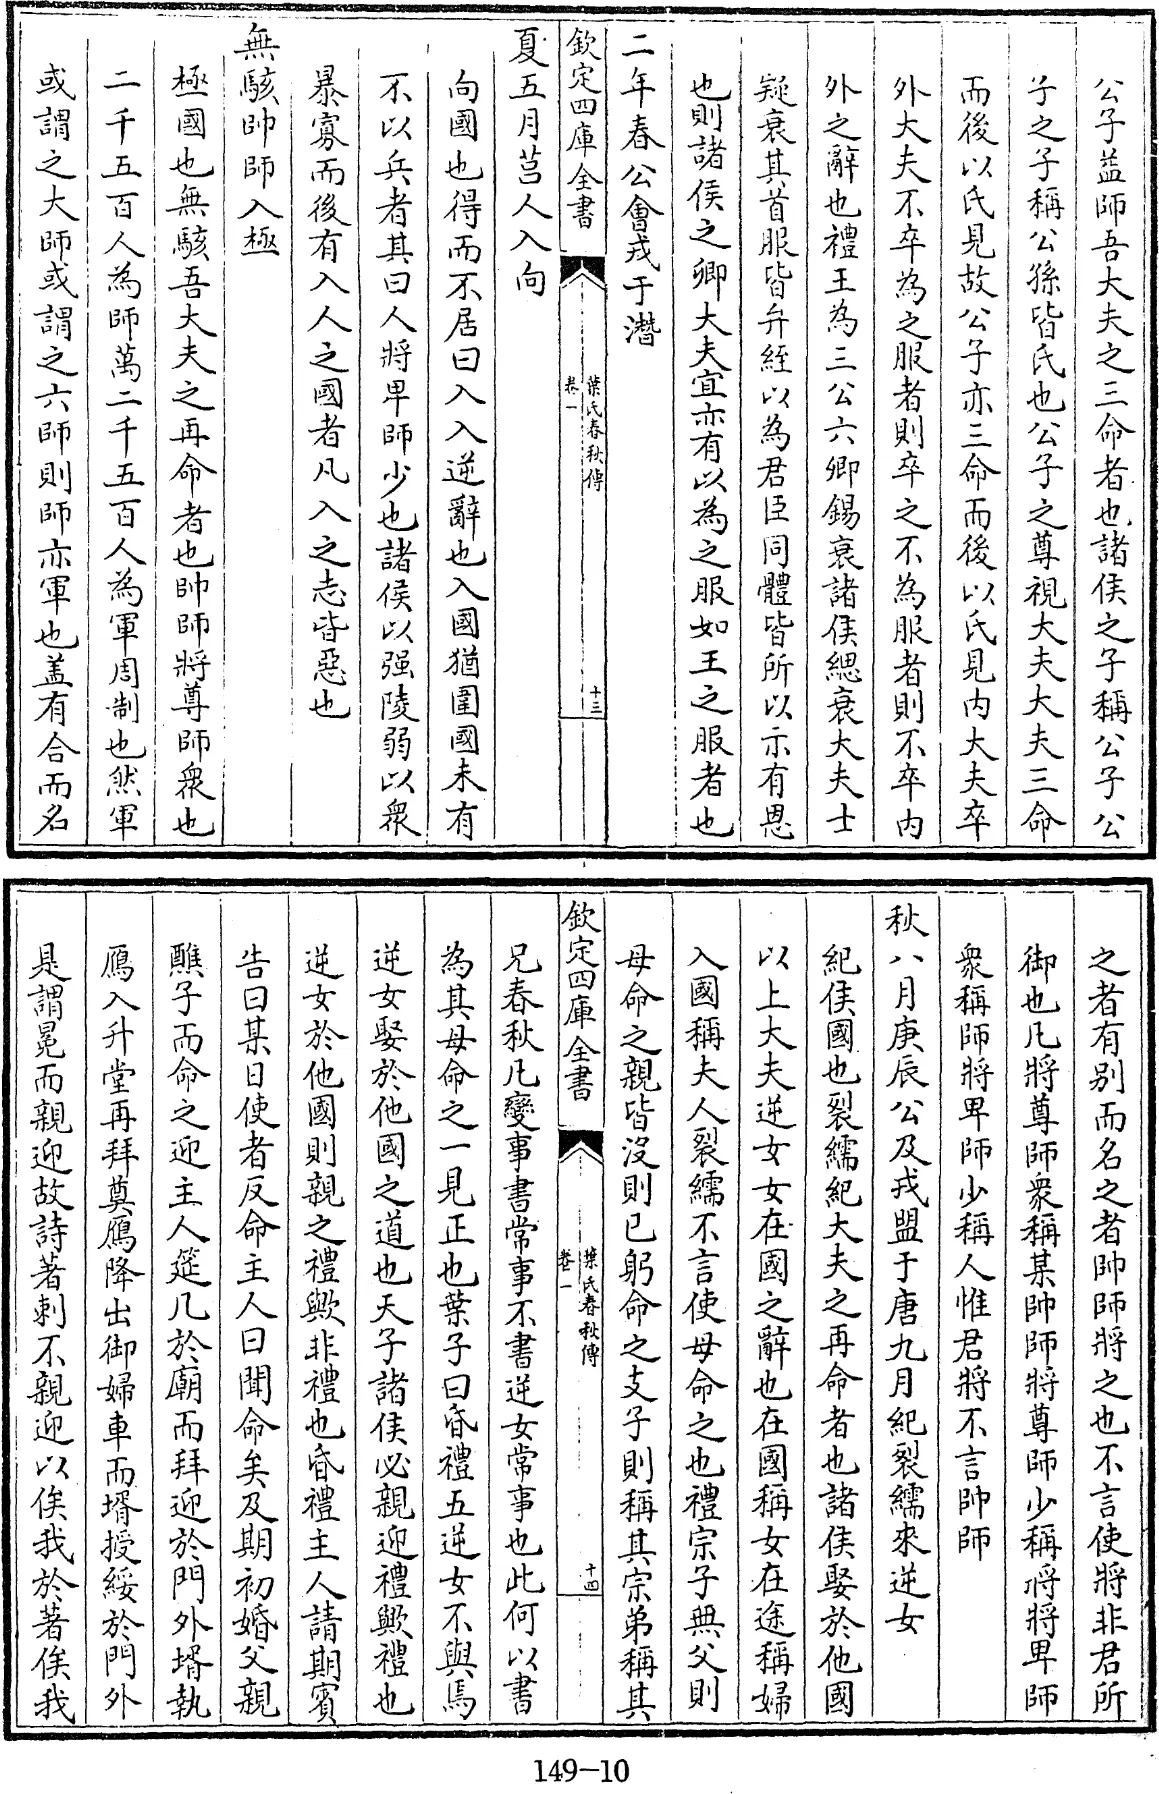 公子益師吾大夫之三命者也諸侯之子稱公子公
子之子稱公孫皆氏也公子之尊視大夫大夫三命
而後以氏見故公子亦三命而後以氏見内大夫卒
外大夫不卒為之服者則卒之不為服者則不卒内
外之辭也禮王為三公六卿錫衰諸侯緦衰大夫士
疑衰其首服皆弁絰以為君臣同體皆所以示有恩
也則諸侯之卿大夫宜亦有以為之服如王之服者也
二年春公會戎于潛
欽定四庫全書
葉氏春秋傳
卷一
十三
夏五月莒人入向
向國也得而不居曰入入逆辭也入國猶圍國未有
不以兵者其曰人將卑師少也諸侯以强陵弱以衆
暴寡而後有入人之國者凡入之志皆惡也
無駭帥師入極
極國也無駭吾大夫之再命者也帥師將尊師衆也
二千五百人為師萬二千五百人為軍周制也然軍
或謂之大師或謂之六師則師亦軍也盖有合而名
之者有别而名之者帥師將之也不言使將非君所
御也凡將尊師衆稱某帥師將尊師少稱將將卑師
衆稱師將卑師少稱人惟君將不言帥師
秋八月庚辰公及戎盟于唐九月紀裂繻來逆女
紀侯國也裂繻紀大夫之再命者也諸侯娶於他國
以上大夫逆女女在國之辭也在國稱女在途稱婦
入國稱夫人裂繻不言使母命之也禮宗子無父則
母命之親皆没則已躬命之支子則稱其宗弟稱其
欽定四庫全書
葉氏春秋傳
卷一
十四
兄春秋凡變事書常事不書逆女常事也此何以書
為其母命之一見正也葉子曰昏禮五逆女不與焉
逆女娶於他國之道也天子諸侯必親迎禮歟禮也
逆女於他國則親之禮歟非禮也昏禮主人請期賓
告曰某日使者反命主人曰聞命矣及期初婚父親
醮子而命之迎主人筵几於廟而拜迎於門外壻執
鴈入升堂再拜奠鴈降出御婦車而壻授綏於門外
是謂冕而親迎故詩著刺不親迎以俟我於著俟我
149-10